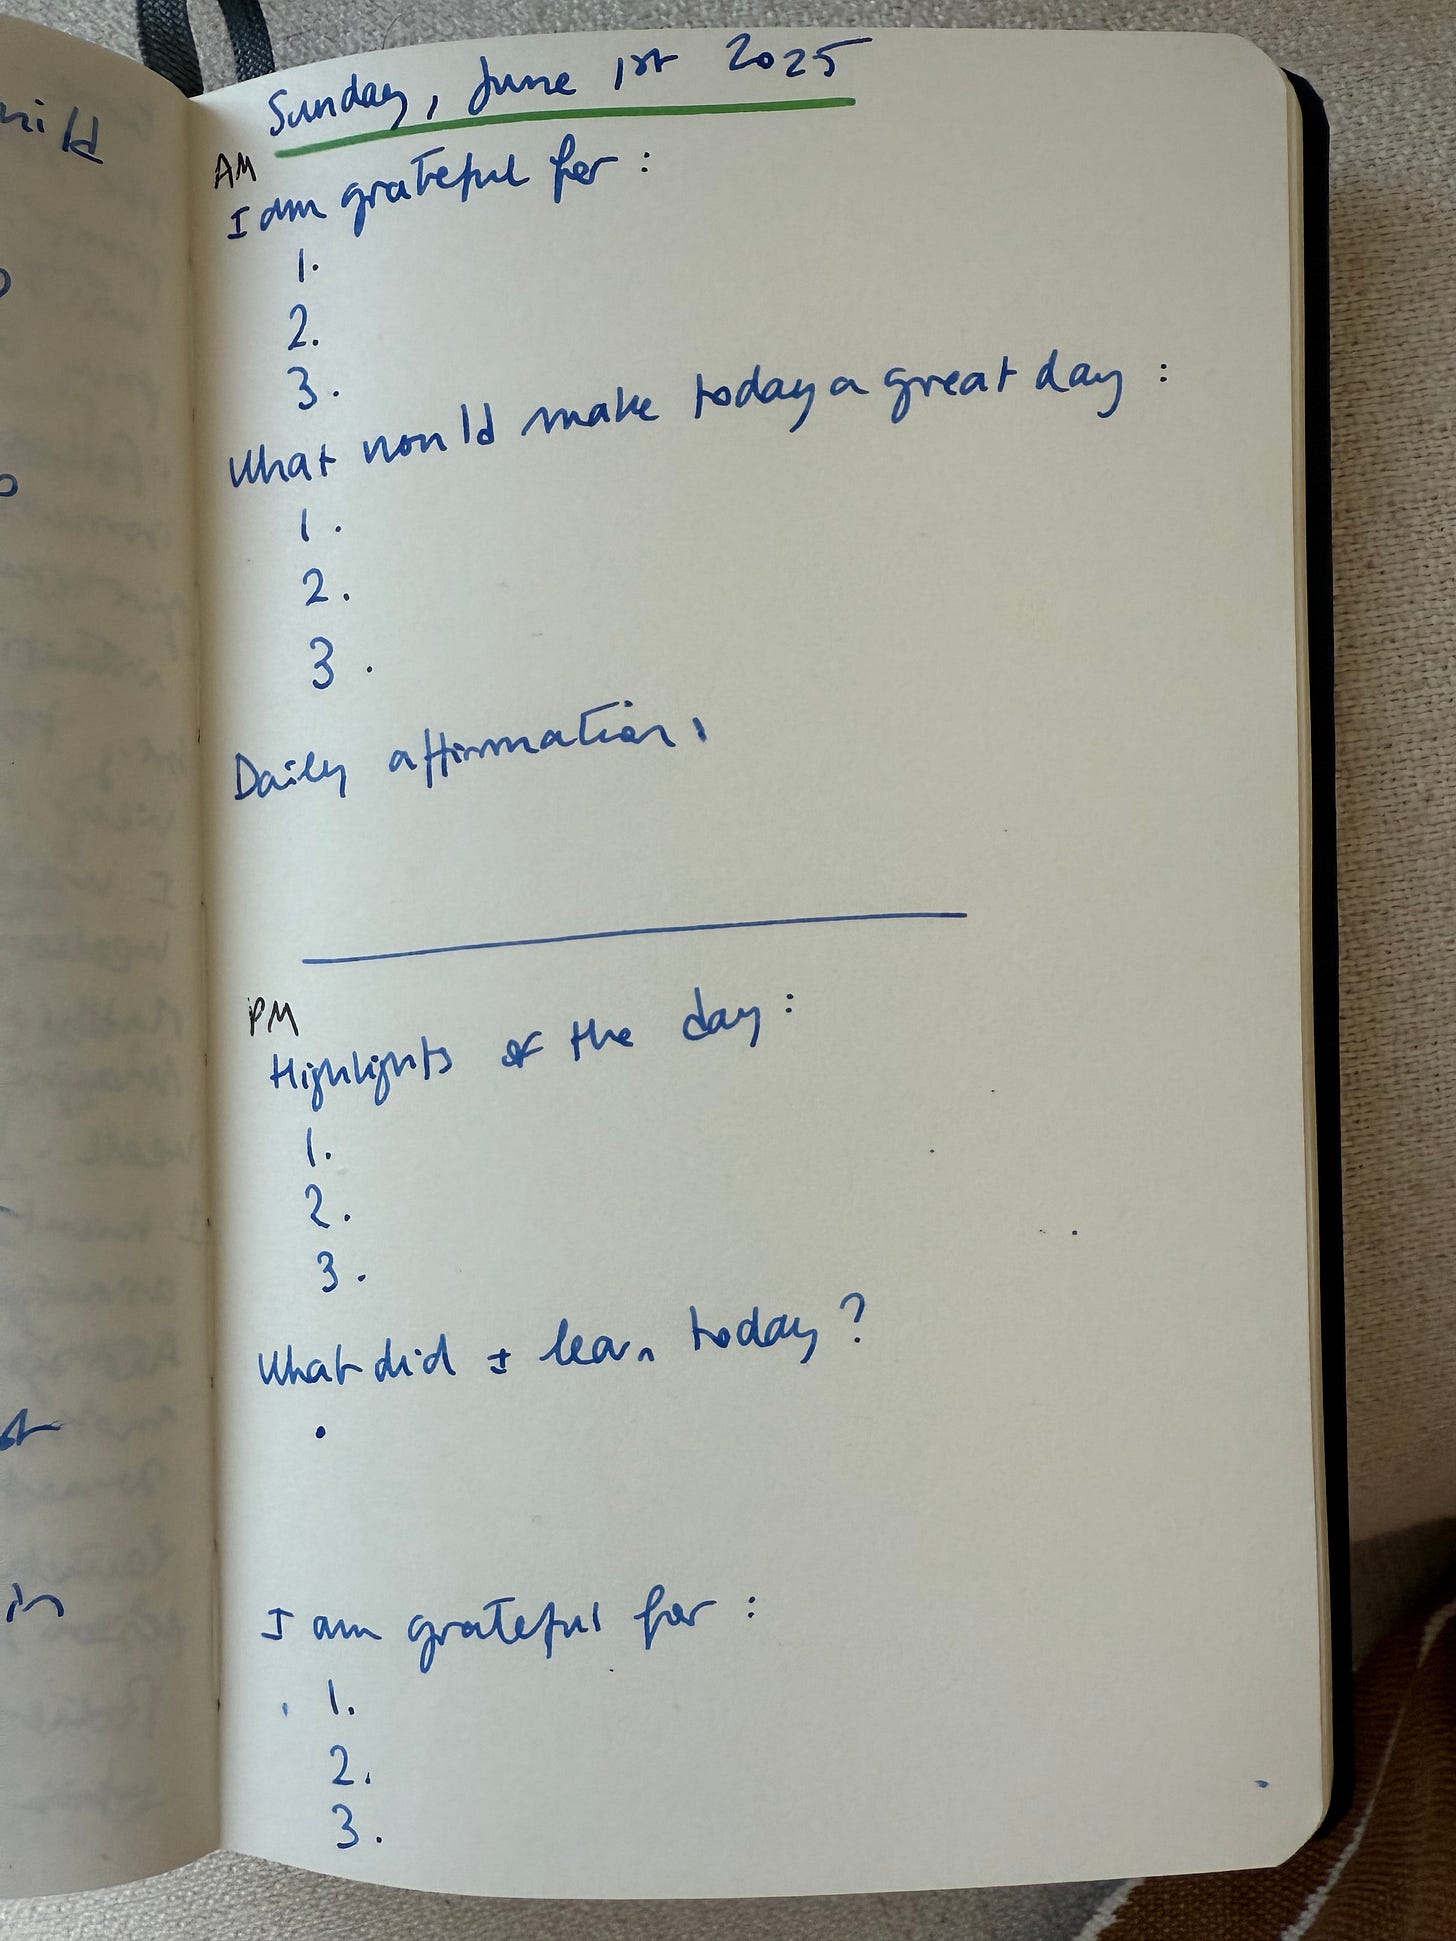 Sunday, June 1st 2025
AM
I am grateful for :
1.
2.
3.
What would make today a great day :
1.
2.
3.
Daily affirmation:
PM
Highlights of the day :
1.
2.
3.
What did I learn today ?
•
I am grateful for :
1.
2.
3.